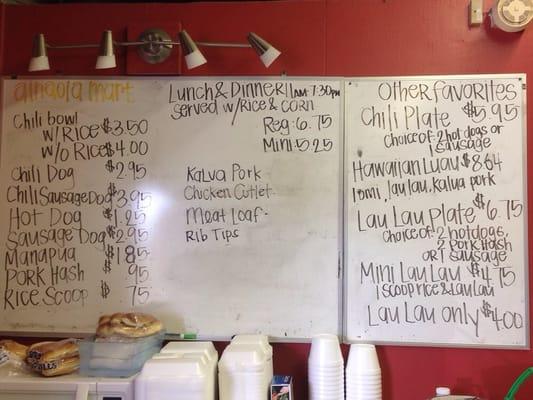 ainaola mart
Chili bowl
w/Rice $3.50
w/o Rice $4.00
Chili Dog $2.95
Chili Sausage Dog $3.95
Hot Dog $1.25
Sausage Dog $2.95
Manapua $1.85
Pork Hash $.95
Rice Scoop $.75
Lunch & Dinner! 11AM-7:30PM
served w/Rice & corn
Reg: 6.75
Mini: 5.25
Kalua Pork
Chicken Cutlet
Meat Loaf
Rib Tips
Other Favorites
Chili Plate $5.95
choice of: 2 hot dogs or
1 sausage
Hawaiian Luau $8.64
lomi, lau lau, kalua pork
Lau Lau Plate $6.75
choice of: 2 hotdogs,
2 pork Hash
or 1 sausage
Mini Lau Lau $4.75
1 scoop rice & lau lau
Lau Lau only $4.00